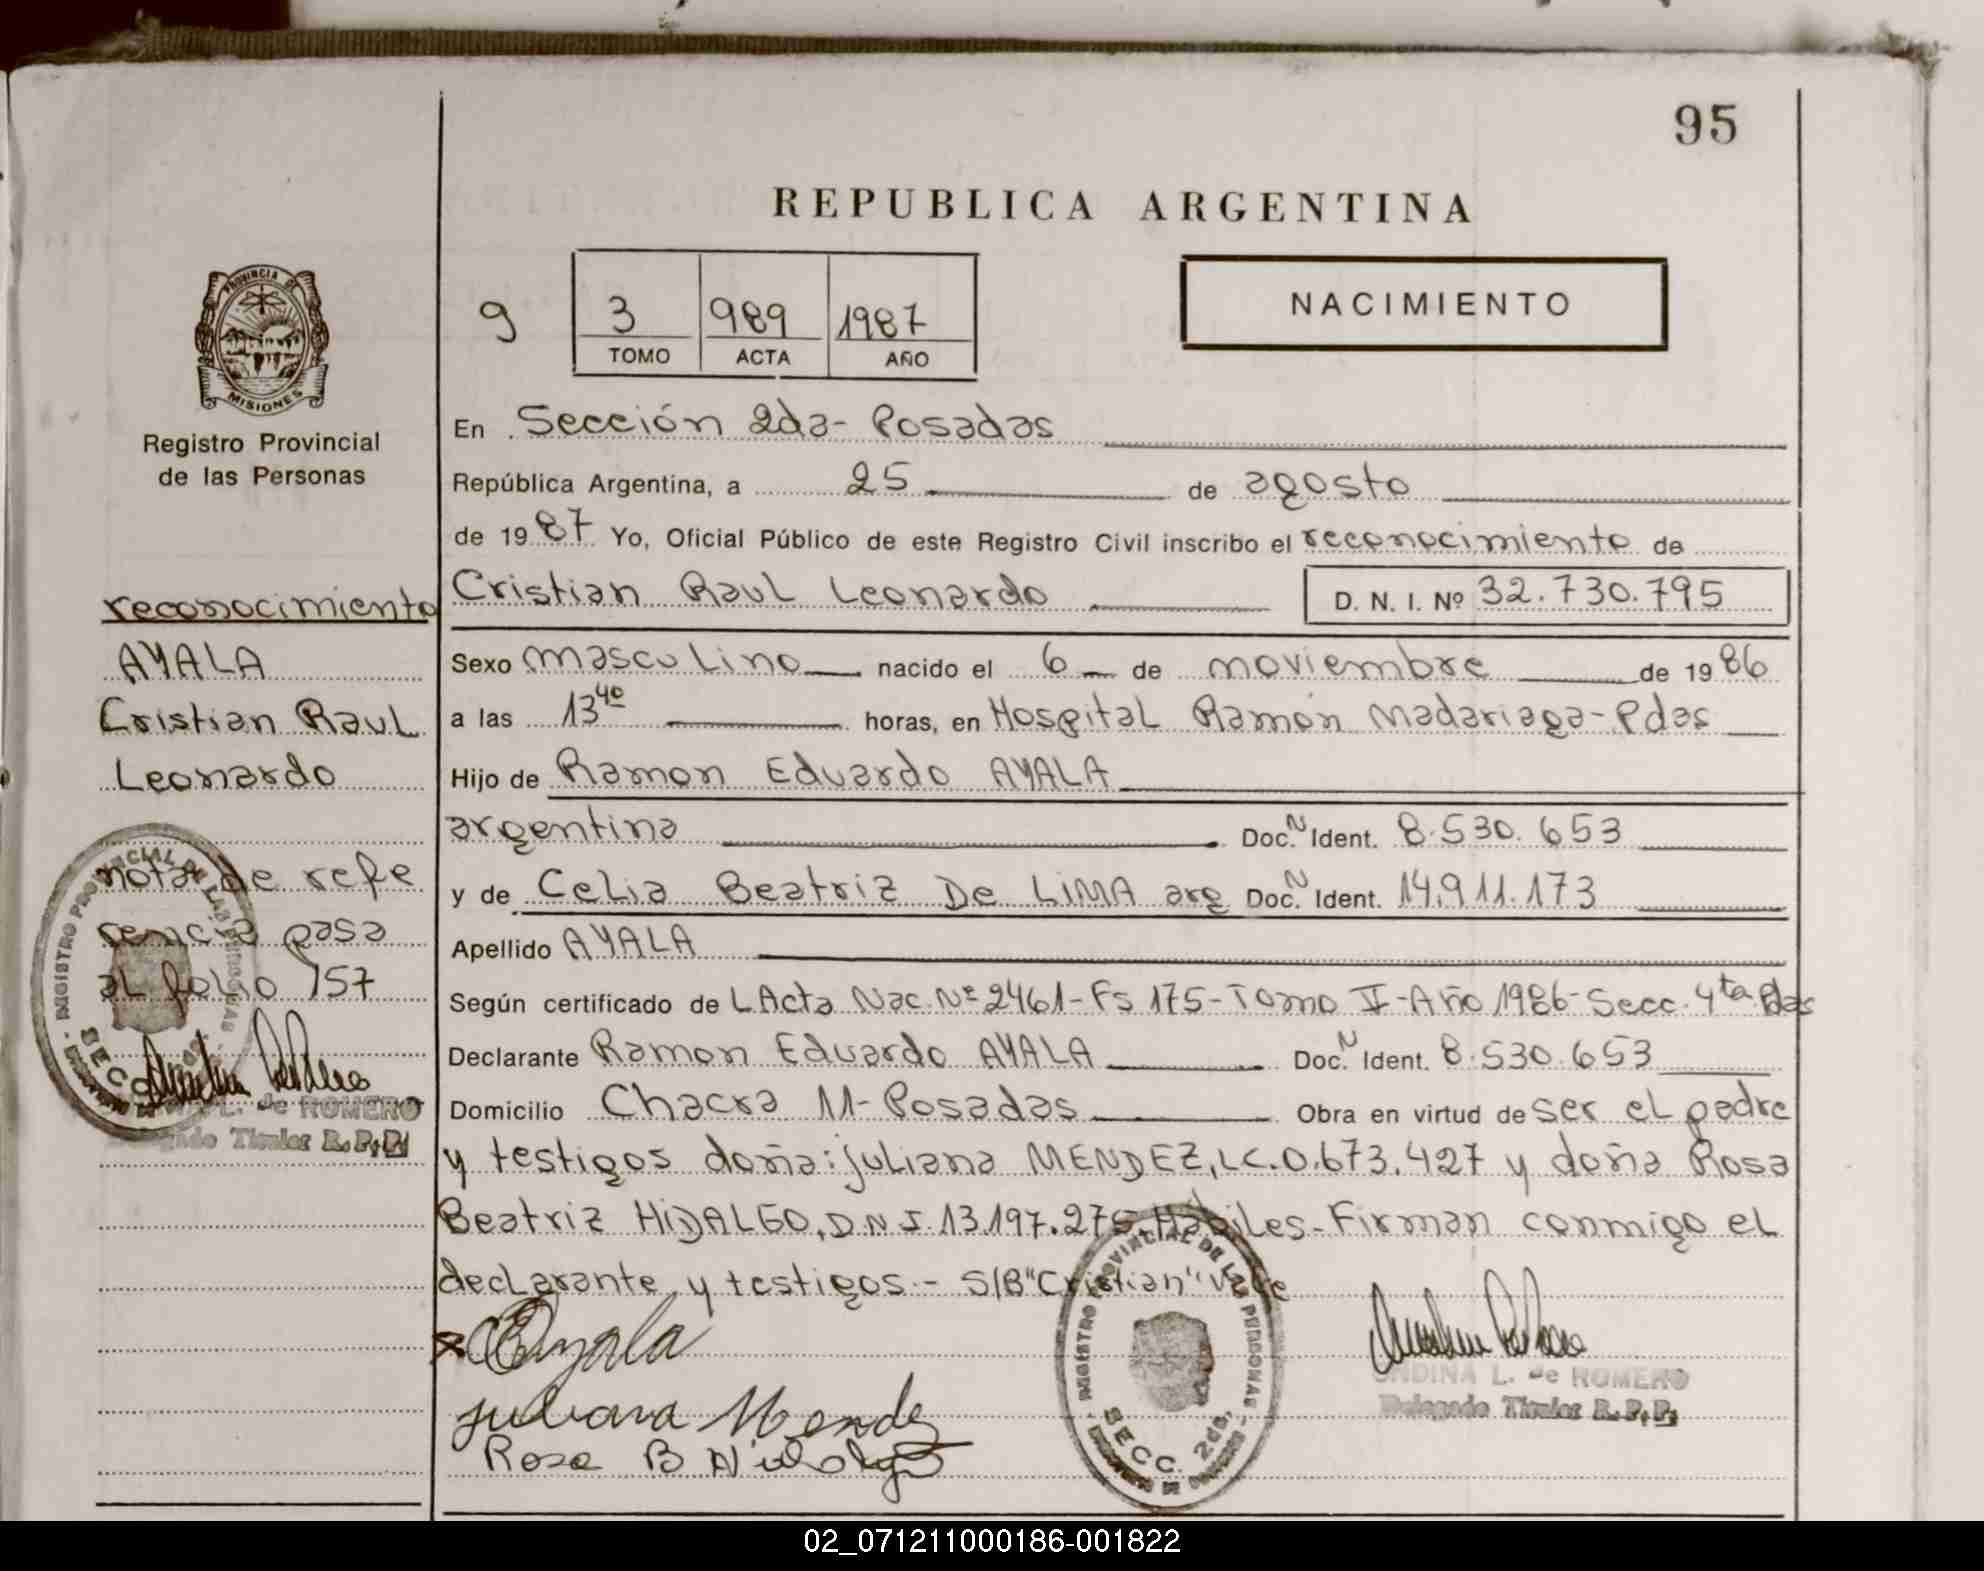 95
REPUBLICA ARGENTINA
9 3 989 1987
TOMO ACTA AÑO
NACIMIENTO
PROVINCIA DE
MISIONES
Registro Provincial
de las Personas
En Sección 2da- Posadas
República Argentina, a 25 de agosto
de 1987 Yo, Oficial Público de este Registro Civil inscribo el reconocimiento de
Cristian Raul Leonardo D. N. I. Nº 32.730.795
Sexo masculino nacido el 6 de noviembre de 1986
a las 13 40 horas, en Hospital Ramón Madariaga-Pdas
Hijo de Ramon Eduardo AYALA
argentina Doc. N Ident. 8.530.653
y de Celia Beatriz De LIMA arg Doc. N Ident. 14.911.173
Apellido AYALA
Según certificado de L Acta Nac. Nº 2461-Fs 175-Tomo II-Año 1986-Secc. 4ta Pdas
Declarante Ramon Eduardo AYALA Doc. N Ident. 8.530.653
Domicilio Chacra 11-Posadas Obra en virtud de ser el padre
y testigos doña: juliana MENDEZ, LC.0.673.427 y doña Rosa
Beatriz HIDALGO, D.N.I. 13.197.275. Habiles-Firman conmigo el
declarante y testigos.- S/B "Cristian" Vale
reconocimiento
AYALA
Cristian Raul
Leonardo
nota de refe
rencia pasa
al folio 157
REGISTRO PROVINCIAL DE LAS PERSONAS
SECC.
L. de ROMERO
Delegado Titular R.P.P.
Ayala
juliana Mendez
Rosa B Hidalgo
REGISTRO PROVINCIAL DE LAS PERSONAS
SECC. 2da.
ONDINA L. de ROMERO
Delegado Titular R.P.P.
02_071211000186-001822